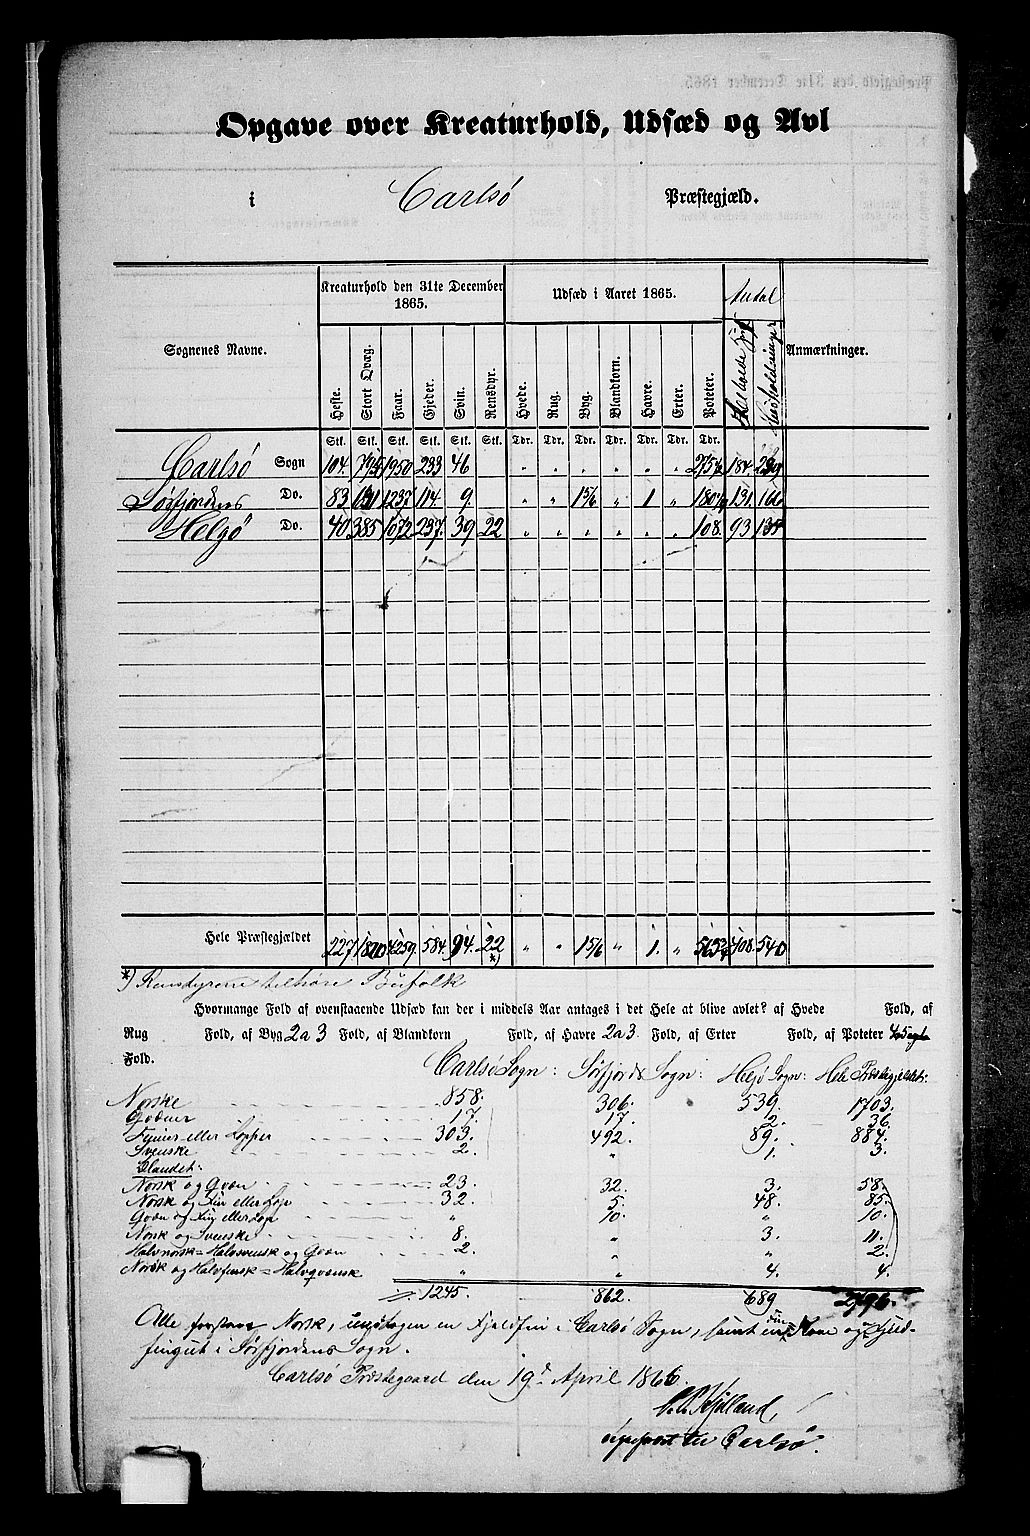 Opgave over Kreaturhold, Udsæd og Avl
i Carlsö Præstegjæld.
Sognenes Navne. Kreaturhold den 31te December 1865. Udsæd i Aaret 1865. Antal Anmærkninger.
Heste. Stort Qvæg. Faar. Gjeder. Svin. Rensdyr. Hvede. Rug. Byg. Blandkorn. Havre. Erter. Poteter. Huusholdninger
Stk. Stk. Stk. Stk. Stk. Stk. Tdr. Tdr. Tdr. Tdr. Tdr. Tdr. Tdr.
Carlsö Sogn 104. 795 1950 233 46 " " " " " " 184
Sörfjordens Do. 83 1237 114. 9. " " 1 5/6 " 1 " 131.
Helgö Do. 40 385 1072 237. 39 22 " " " " " " 108. 93 135
Hele Præstegjældet 227 4259. 584. 94. 22 *) " " 1 5/6 " 1. " 408. 540
*) Rensdyrene tilhöre Bufolk
Hvormange Fold af ovenstaaende Udsæd kan der i middels Aar antages i det Hele at blive avlet? af Hvede Fold, af
Rug Fold, af Byg 2 a 3 Fold, af Blandkorn Fold, af Havre 2 a 3. Fold, af Erter Fold, af Poteter
Fold.
Carlsö Sogn: Sörfjords Sogn: Helgö Sogn: Hele Præstegjeldet:
Norske 858. 306. 539. 1703.
Qvæner 17. 17. 2. 36.
Finner eller Lapper 303. 492. 89. 884.
Svenske 2. " 1. 3.
Blandet:
Norsk og Qvæn 23. 32. 3. 58.
Norsk og Fin eller Lap 32. 5. 48. 85.
Qvæn og Fin eller Lap " 10. " 10.
Norsk og Svenske 8. " 3. 11.
Halvnorsk = Halvsvensk og Qvæn 2. " " 2.
Norsk og Halvfinsk = Halvqvænsk " " 4. 4.
1245. 862. 689 2796.
Alle forstaae Norsk, undtagen en Fjeldfin i Carlsö Sogn, samt en Kone og
i Sörfjordens Sogn.
Carlsö Præstegaard den 19d April 1866.
til Carlsö.